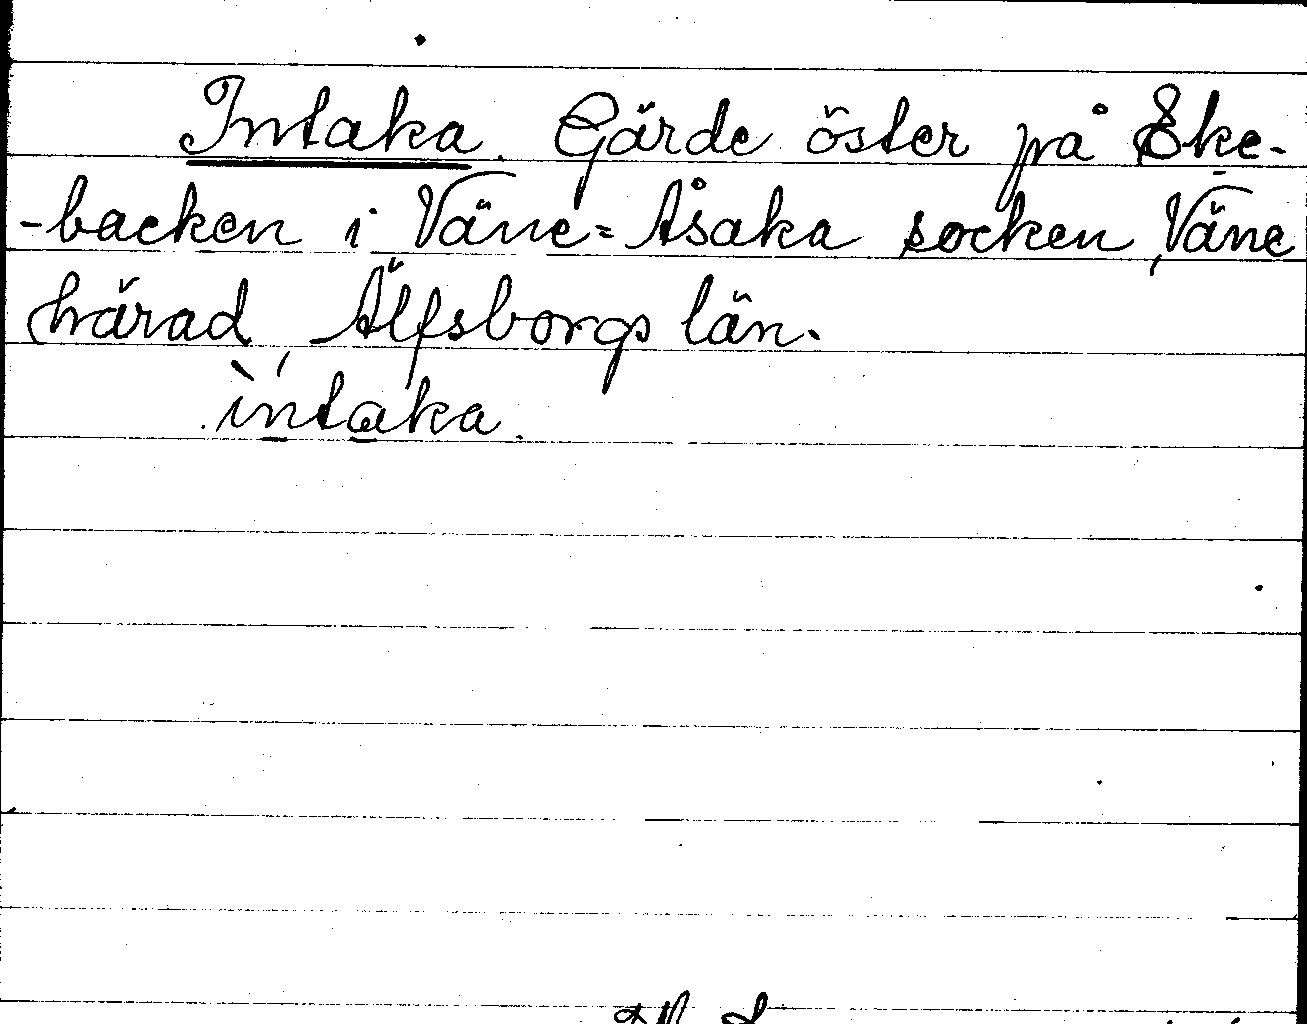 Intaka. Gärde öster på Eke-
-backen i Väne=Åsaka socken, Väne
härad, Älfsborgs län.
ìntaka.